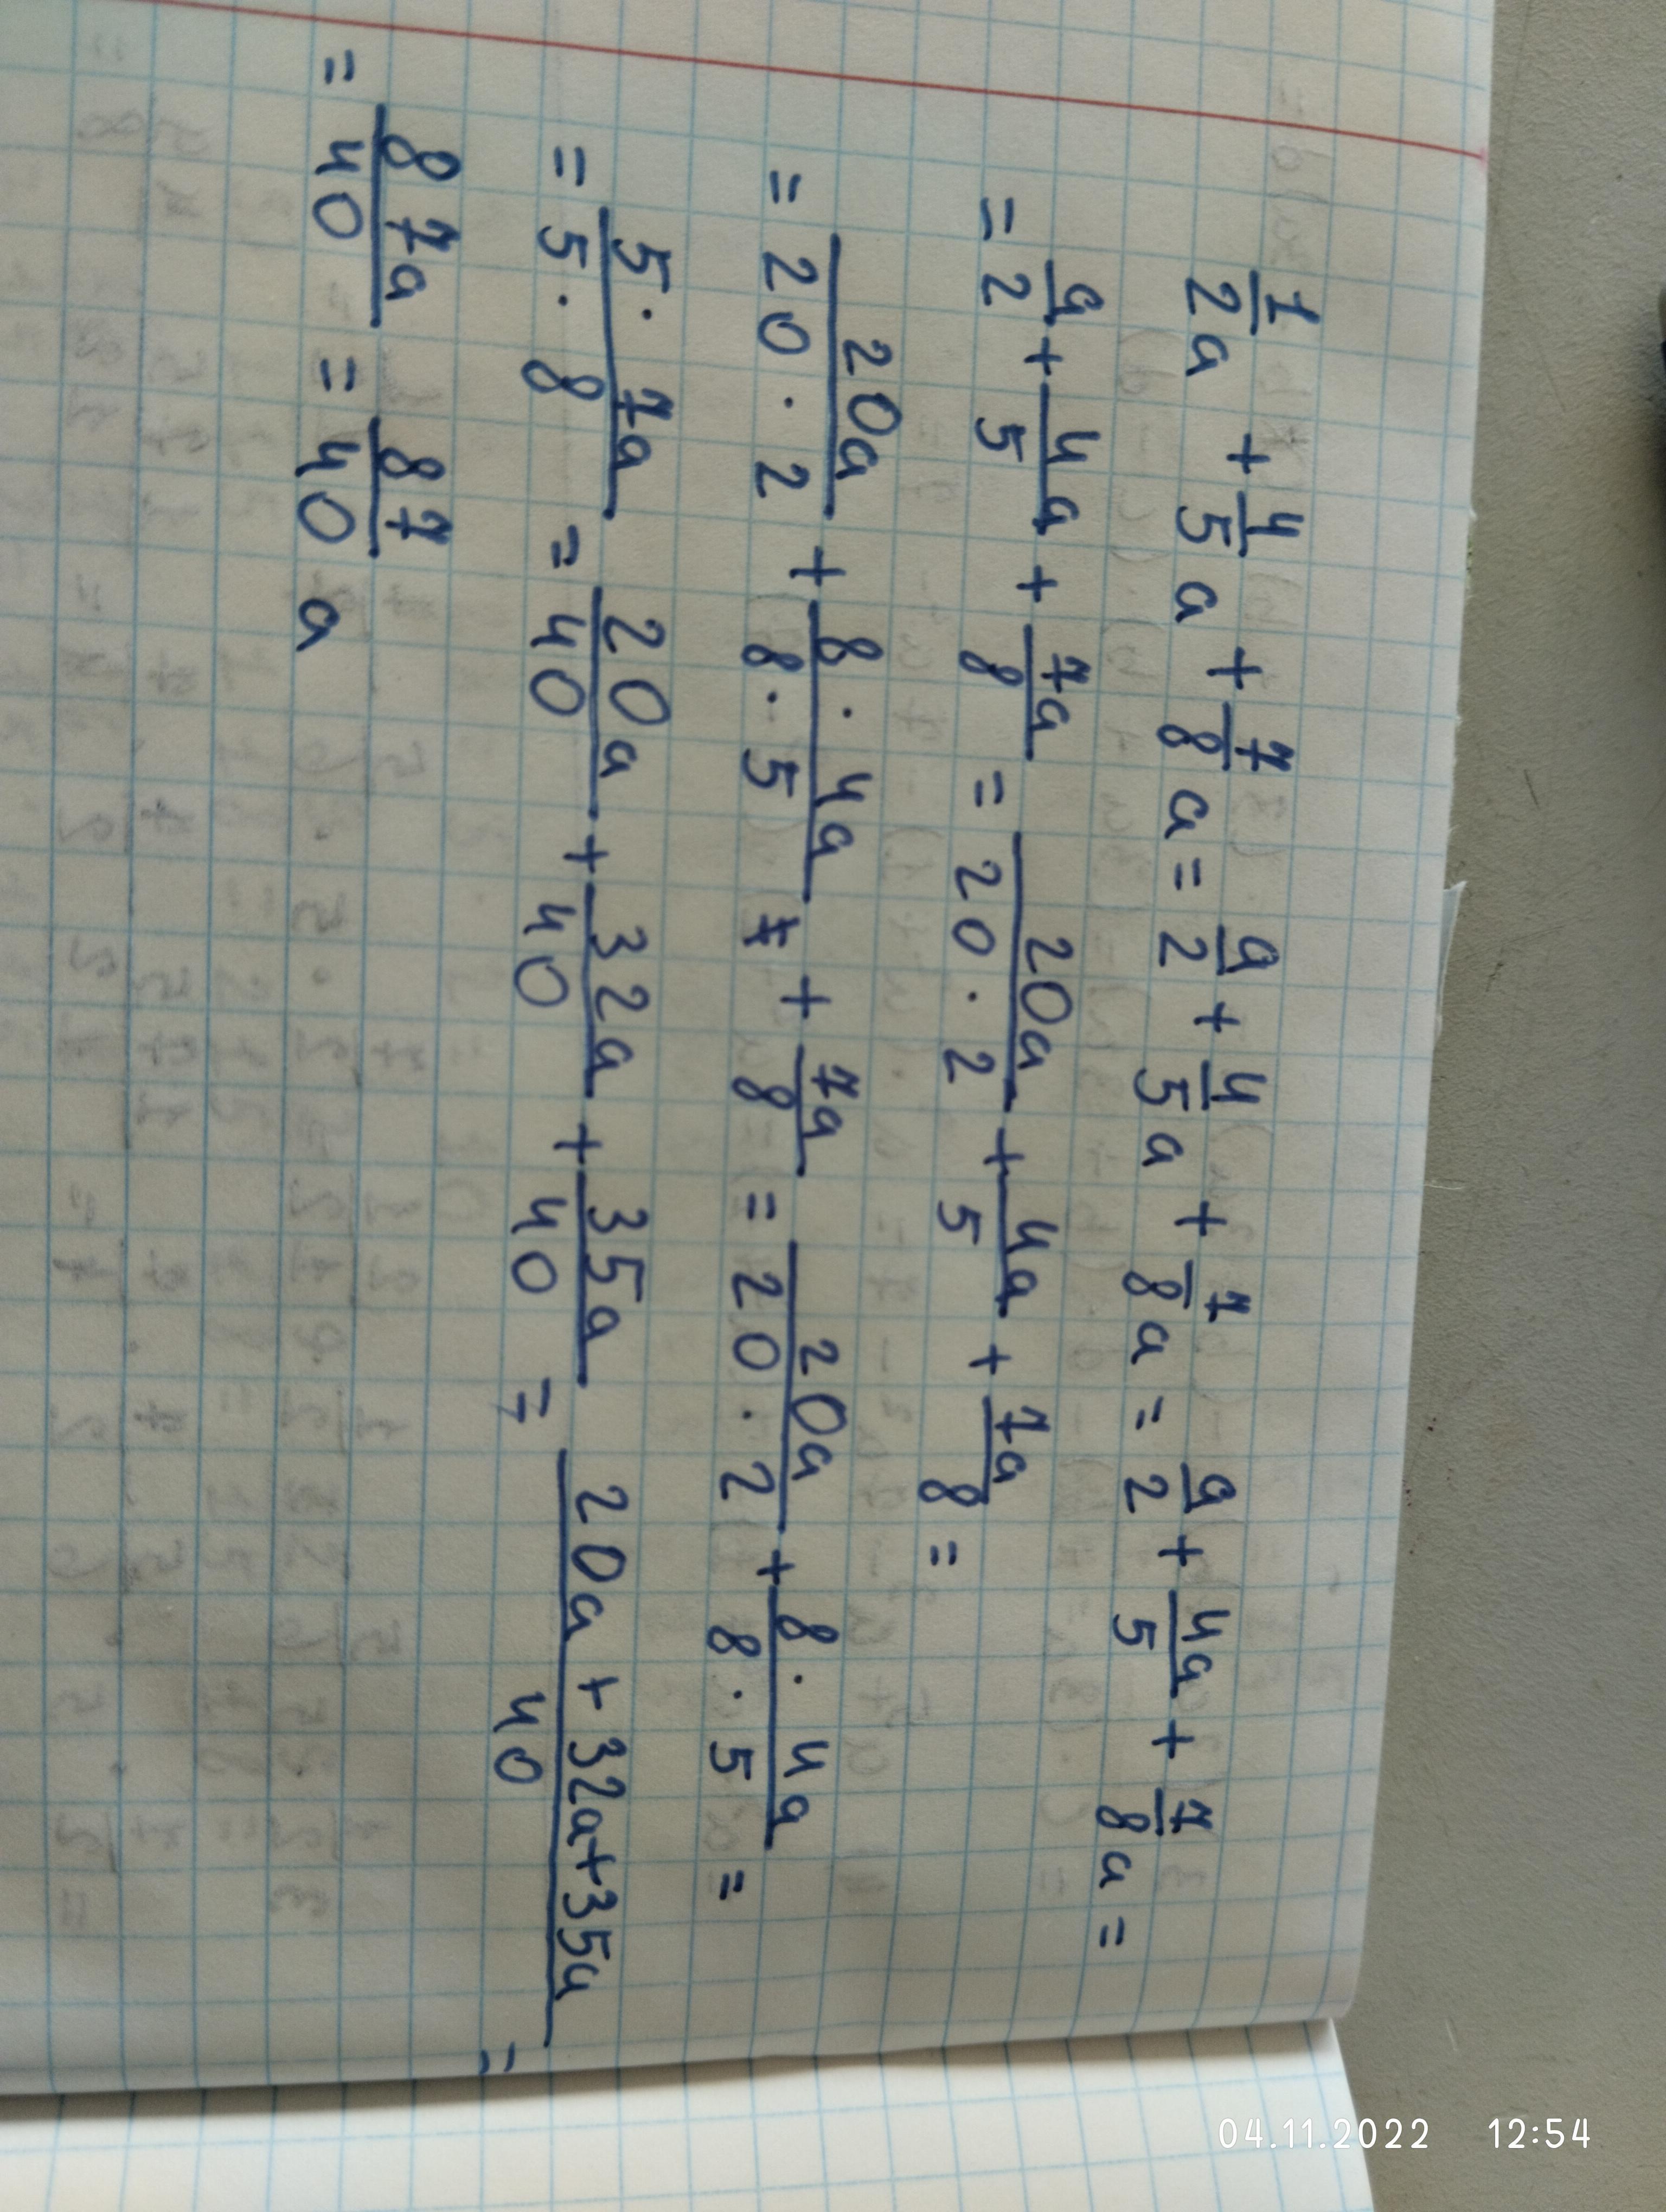 1/2 a + 4/5 a + 7/8 a = a/2 + 4/5 a + 7/8 a = a/2 + 4a/5 + 7/8 a =
= a/2 + 4a/5 + 7a/8 = 20a/20·2 + 4a/5 + 7a/8 =
= 20a/20·2 + 8·4a/8·5 + 7a/8 = 20a/20·2 + 8·4a/8·5 =
= 5·7a/5·8 = 20a/40 + 32a/40 + 35a/40 = 20a+32a+35a/40 =
= 87a/40 = 87/40 a
04.11.2022 12:54